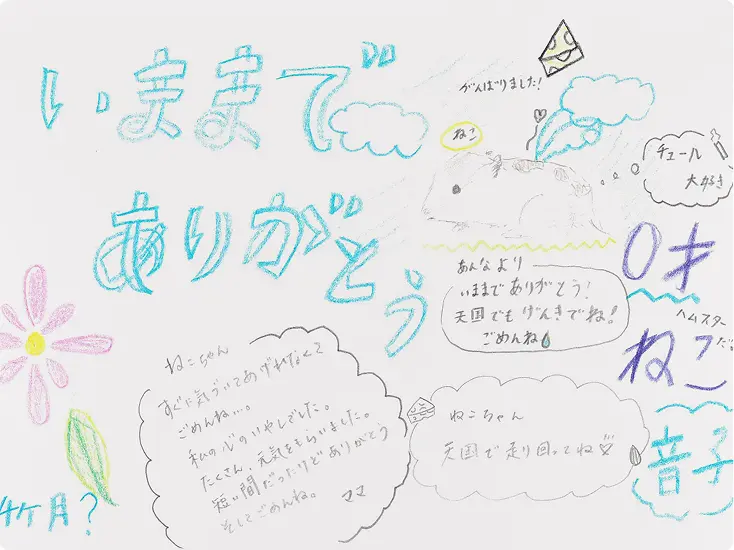 いままで
ありがとう
がんばりました!
ねこ
チュール
大好き
あんなより
いままでありがとう!
天国でもげんきでね!
ごめんね
0才
ハムスターだ
ねこ
音子
ねこちゃん
すぐに気づいてあげれなくて
ごめんね…。
私の心のいやしでした。
たくさん、元気をもらいました。
短い間だったけどありがとう
そしてごめんね。
ママ
ねこちゃん
天国で走り回ってね♡
4ケ月?